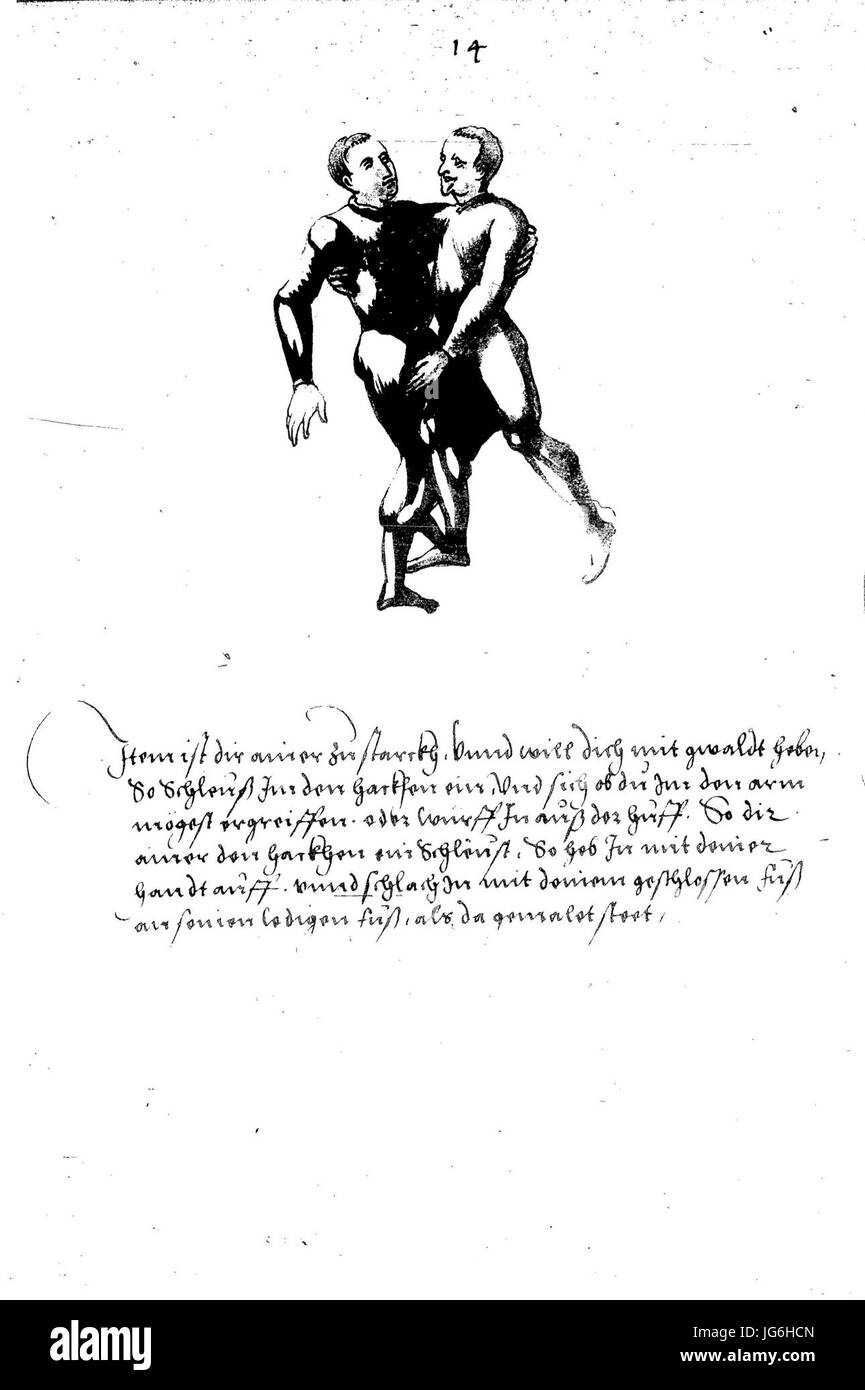 14
Item ist dir ainer zu starckh, Vnnd will dich mit gwaldt heben,
So Schleuß Im den hackhen ein, Vnd sich ob du Im den arm
mogest ergreiffen. oder Wurff In auß der huff. So dir
ainer den hackhen ein Schleust, So heb In mit deiner
handt auff. vnnd schlach In mit deinem geschlossen fuß
an seinen ledigen fuß, als da gemalet steet,
a
alamy stock photo
alamy
Image ID: JG6HCN
www.alamy.com